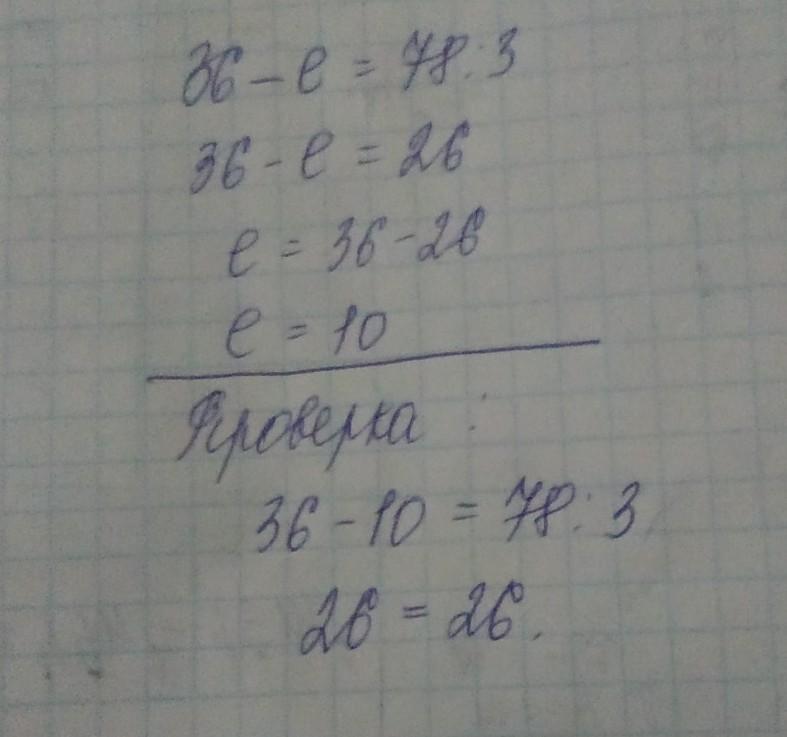 36 - e = 78 : 3
36 - e = 26
e = 36 - 26
e = 10
Проверка :
36 - 10 = 78 : 3
26 = 26.